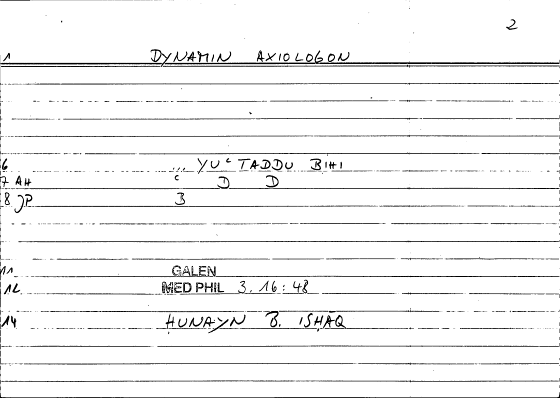 2
1 DYNAMIN AXIOLOGON
6 ... YUʿTADDU BIHI
7 AH ʿ D D
8 JP B
11 GALEN
12 MED PHIL 3.16:48
14 HUNAYN B. ISHĀQ